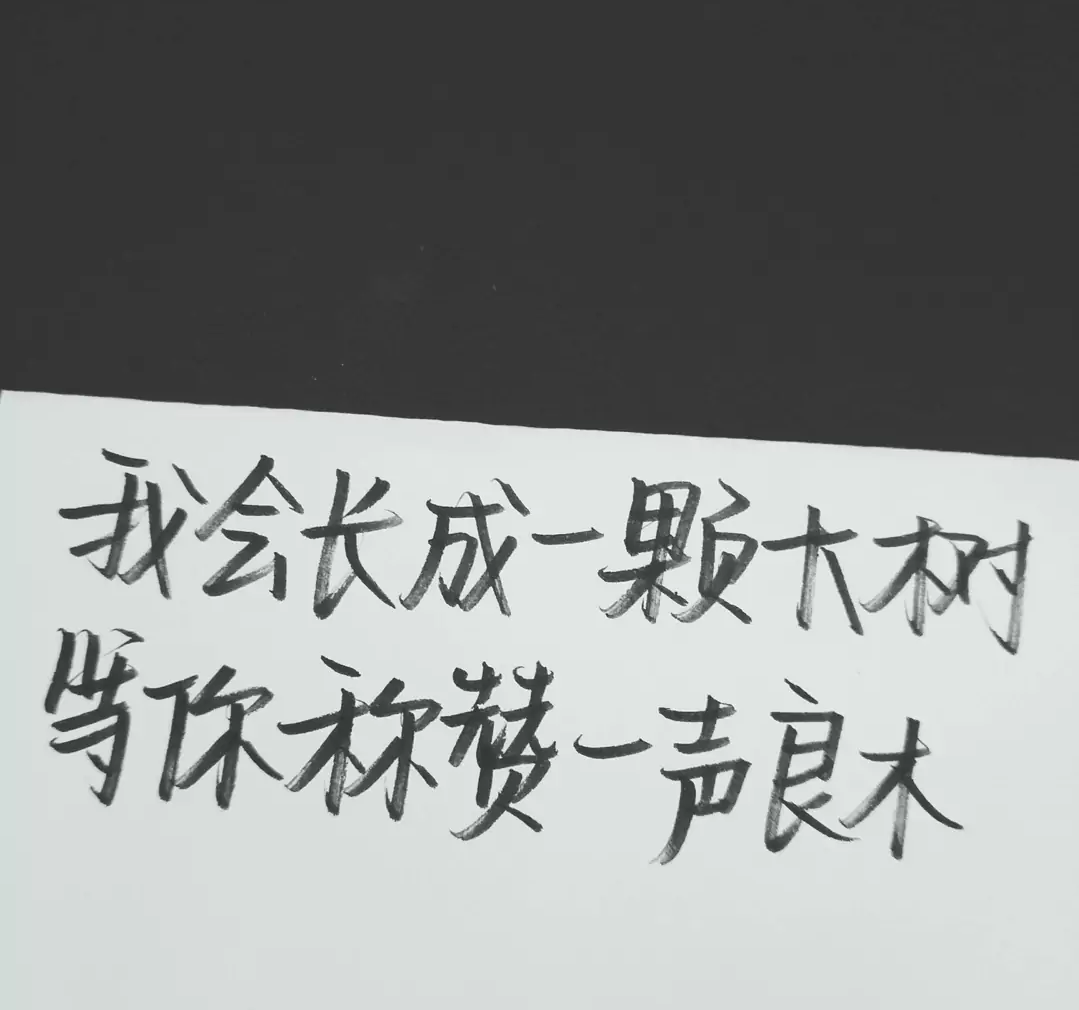 我会长成一颗大树
等你称赞一声良木